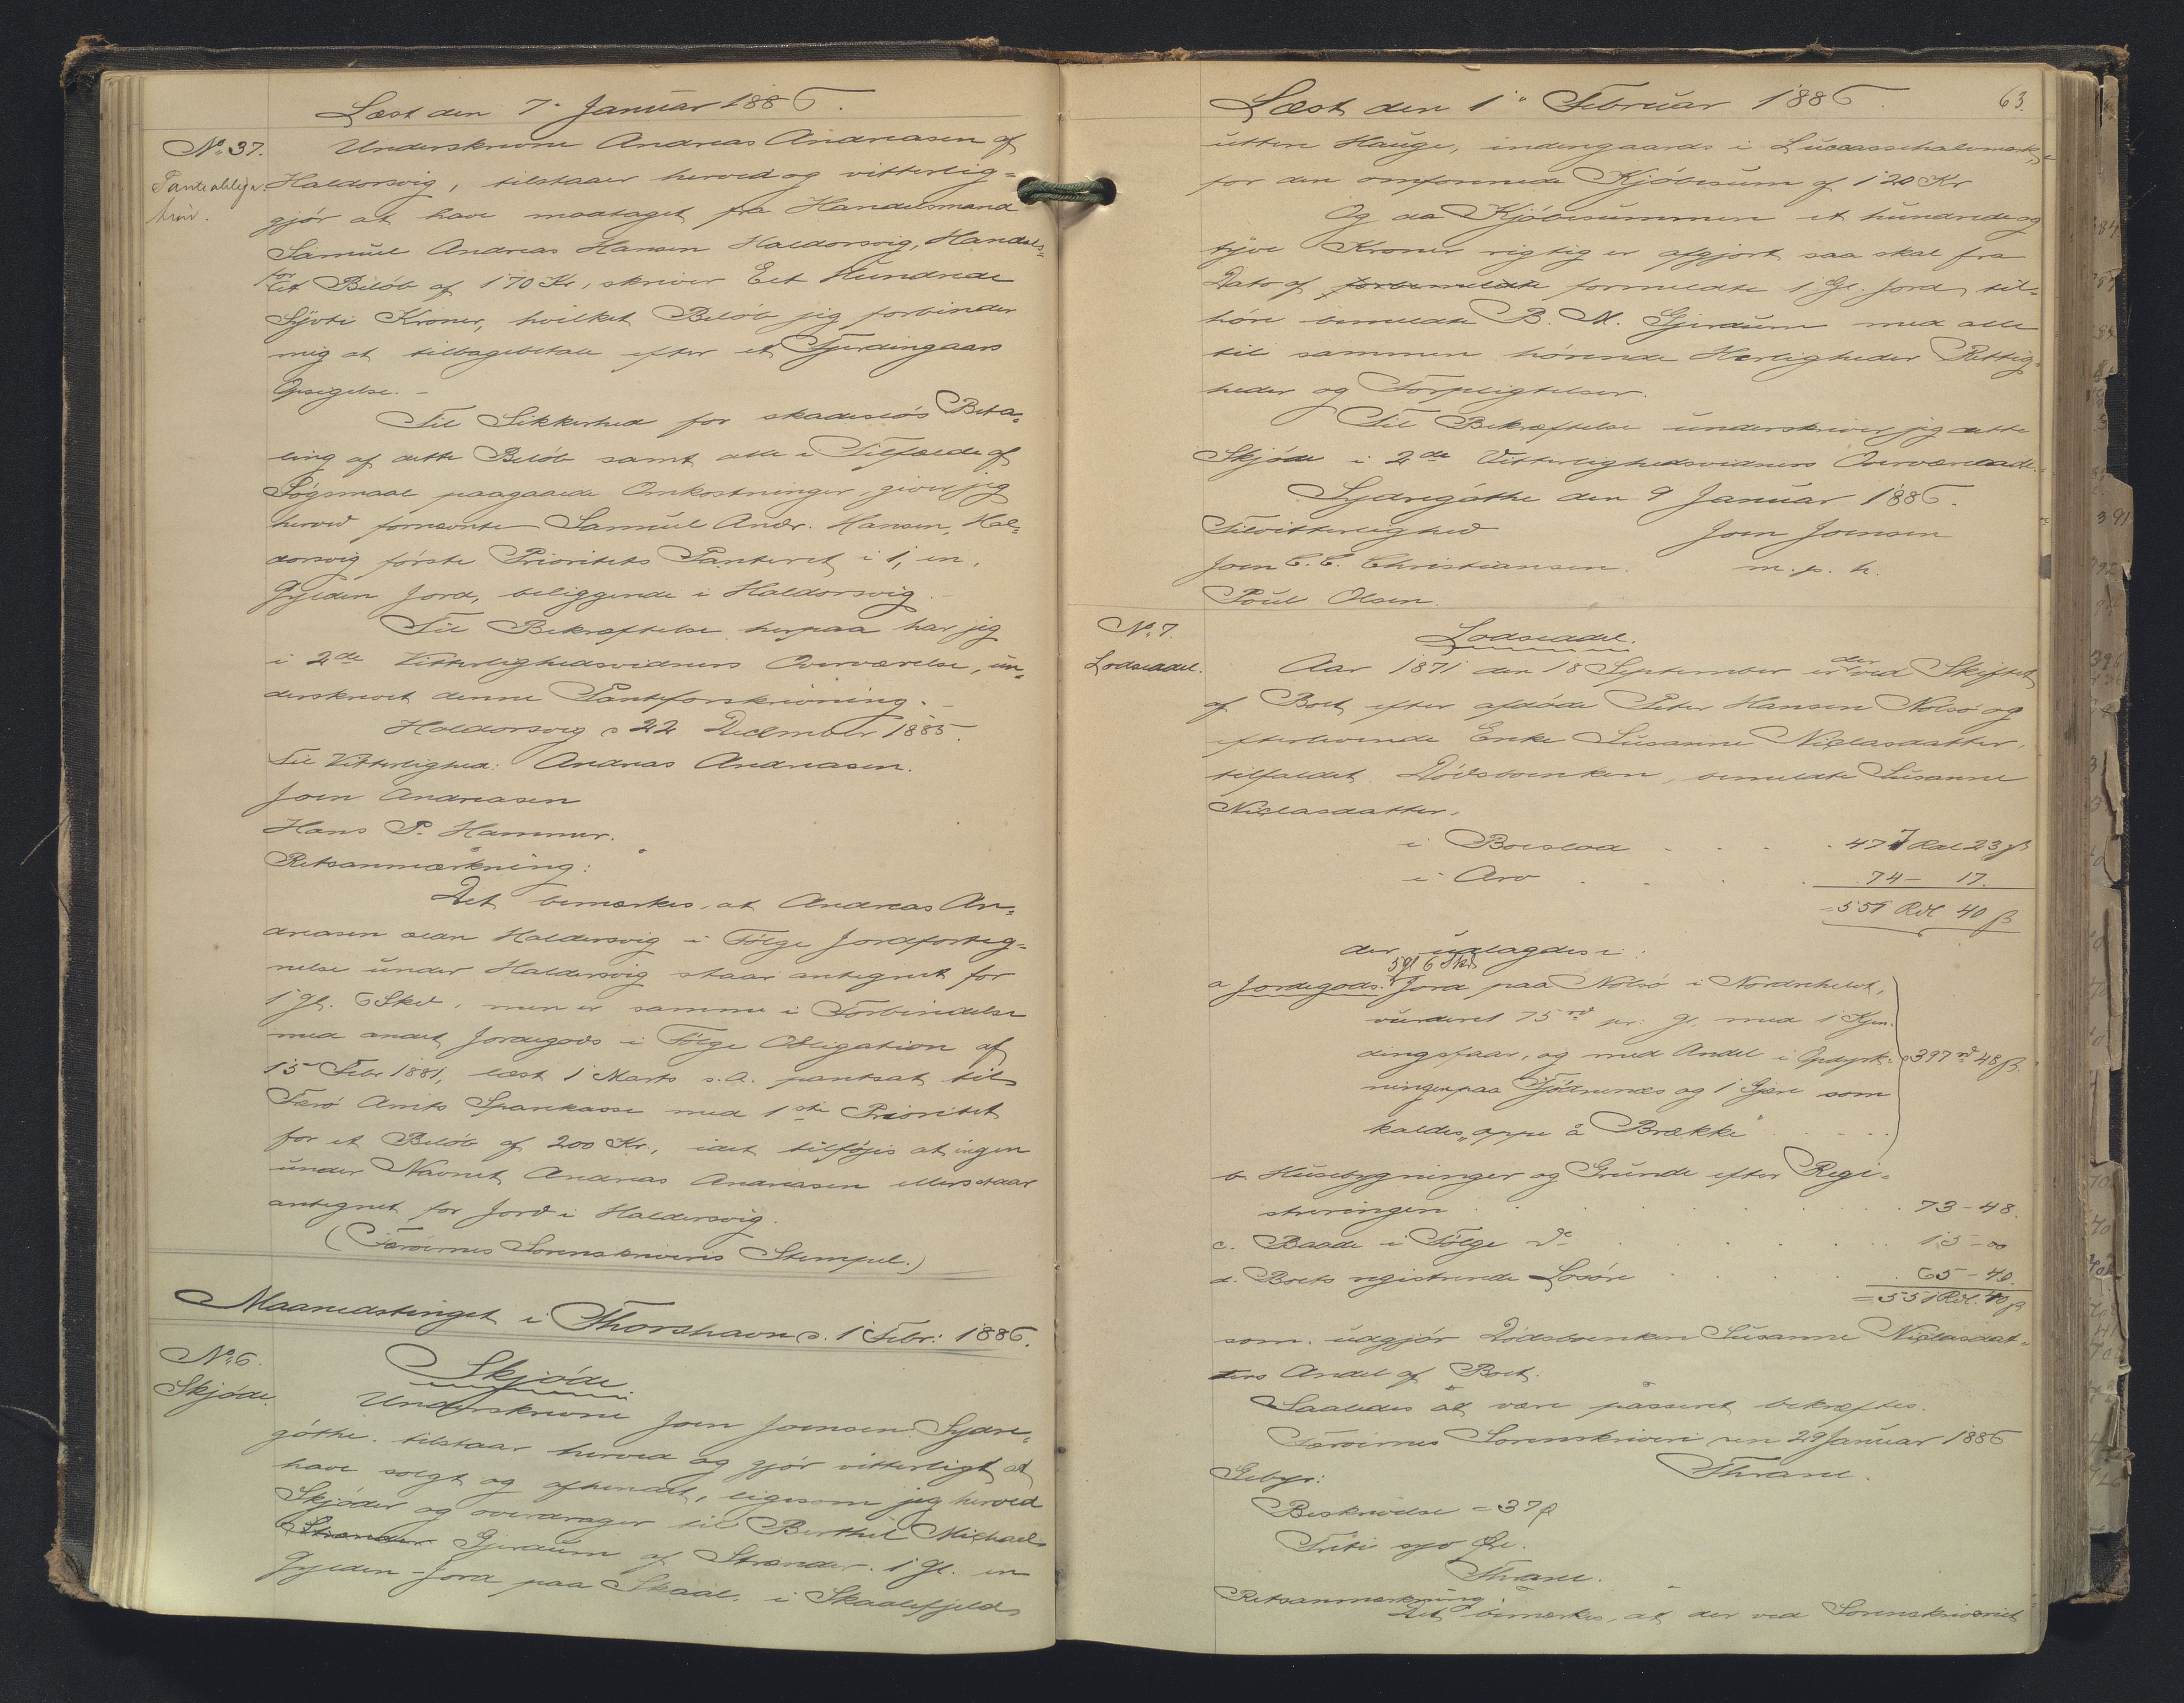 Læst den 7. Januar 1886.
No. 37.
Panteobliga-
tion.
Underskrevne Andreas Andreasen af
Haldorsvig, tilstaaer herved og vitterlig-
gjør at have modtaget fra Handelsmand
Samuel Andreas Hansen Haldorsvig, Handels-
for
et Beløb af 170 Kr, skriver Eet Hundrede
Syvti Kroner, hvilket Beløb jeg forbinder
mig at tilbagebetale efter et Fjerdingaars
Opsigelse. -
Til Sikkerhed for skadesløs Beta-
ling af dette Beløb samt alle i Tilfælde af
Søgsmaal paagaaede Omkostninger, giver jeg
herved fornævnte Samuel Andr. Hansen, Hal-
dorsvig første Prioritets Panteret i 1, en,
Gylden Jord, beliggende i Haldorsvig. -
Til Bekræftelse herpaa har jeg
i 2de Vitterlighedsvidners Overværelse, un-
derskrevet denne Panteforskrivning. -
Haldorsvig d 22 December 1885.
Til Vitterlighed: Andreas Andreasen.
Joen Andreasen
Hans P. Hammer.
Retsanmærkning:
Det bemærkes, at Andreas An-
dreasen Haldersvig i Følge Jordforteg-
nelse under Haldersvig staar antegnet for
1 Gl. 6 Skd, men er samme i Forbindelse
med andet Jordegods i Følge Obligation af
15 Febr 1881, læst 1 Marts s. A. pantsat til
Færø Amts Sparekasse med 1ste Prioritet
for et Beløb af 200 Kr., idet tilføjes at ingen
under Navnet Andreas Andreasen ellers staar
antegnet for Jord i Haldersvig.
(Færøernes Sorenskriveris Stempel.)
Maanedstinget i Thorshavn d. 1 Febr: 1886.
No. 6.
Skjøde.
Skjøde
Underskrevne Joen Joensen Sydre-
gøthe. tilstaar herved og gjør vitterligt at
have solgt og afhendet, ligesom jeg herved
Skjøder og overdrager til Berthel Michael
Strænder Gjerdum af Strænder. 1 Gl. en
Gylden Jord paa Skaale, i Skaalefjelds
Læst den 1. Februar 1886.
63.
uttere Hauge, indengaards i
for den omforenede Kjøbesum af 120 Kr
Og da Kjøbesummen et hundrede og
tyve Kroner rigtig er afgjort saa skal fra
Dato af forbemeldte formeldte 1 Gl. Jord til-
høre bemeldte B. M. Gjerdum med alle
til sammen hørende Herligheder Rettig-
heder og Forpligtelser.
Til Bekræftelse underskriver jeg dette
Skjøde i 2de Vitterlighedsvidners Overværelse.
Sydregøthe den 9 Januar 1886.
Tilvitterlighed Joen Joensen
Joen C. C. Christiansen. m. p. h.
Poul Olsen.
No. 7.
Lodseddel.
Lodseddel.
Aar 1871 den 18 September er der ved Skiftet
af Boet efter afdøde Peter Hansen Nolsø og
efterlevende Enke Susanne Niclasdatter,
tilfaldet Dødsboenken, bemeldte Susanne
Niclasdatter,
i Boeslod . . . . 477 Rdl 23 ß
i Arv . . . . 74 - 17.
= 551 Rdl 40 ß
der udlagdes i:
5 gl 6 Skd
a Jordegods: Jord paa Nolsø i Nordrehelvt,
vurderet 75 rd pr: Gl. med 1 Kjen-
dingsfaar, og med Andel i Opdyrk- 397 rd 48 ß.
ningen paa Tjødnenæs og 1 Gjære som
kaldes "oppe å Brække"
b Husebygninger og Grunde efter Regi-
streringen . . . . 73 - 48.
c. Baade i Følge do . . . . 15 - 00
d. Boets registrerede Løsøre . . . . 65 - 40.
= 551 Rdl. 40 ß
som. udgjør Dødsboenken Susanne Niclasdat-
ters Andel af Boet.
Saaledes at være passeret bekræftes.
Færøernes Sorenskriveri den 29 Januar 1886
Thrane.
Gebyr:
Beskrivelse = 37 ø
Treti syv Øre.
Thrane.
Retsanmærkning
Det bemærkes, at der ved Sorenskriveriet